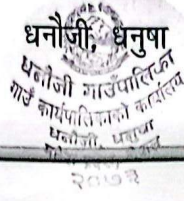 धनौजी, धनुषा
धनौजी गाउँपालिका
गाउँ कार्यपालिकाको कार्यालय
धनौजी, धनुषा
२०७३